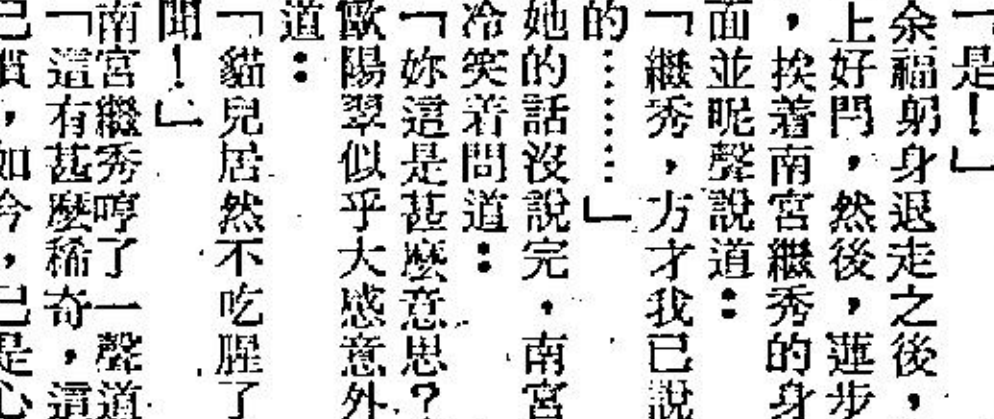 「是！」
余福躬身退走之後，
上好門，然後，蓮步
，挨着南宮繼秀的身
面並昵聲說道：
「繼秀，方才我已說
的⋯⋯⋯」
她的話沒說完，南宮
冷笑着問道：
「妳這是甚麼意思？
歐陽翠似乎大感意外
道：
「貓兒居然不吃腥了
聞！」
南宮繼秀哼了一聲道
「這有甚麼稀奇，這
已慣，如今，已是心